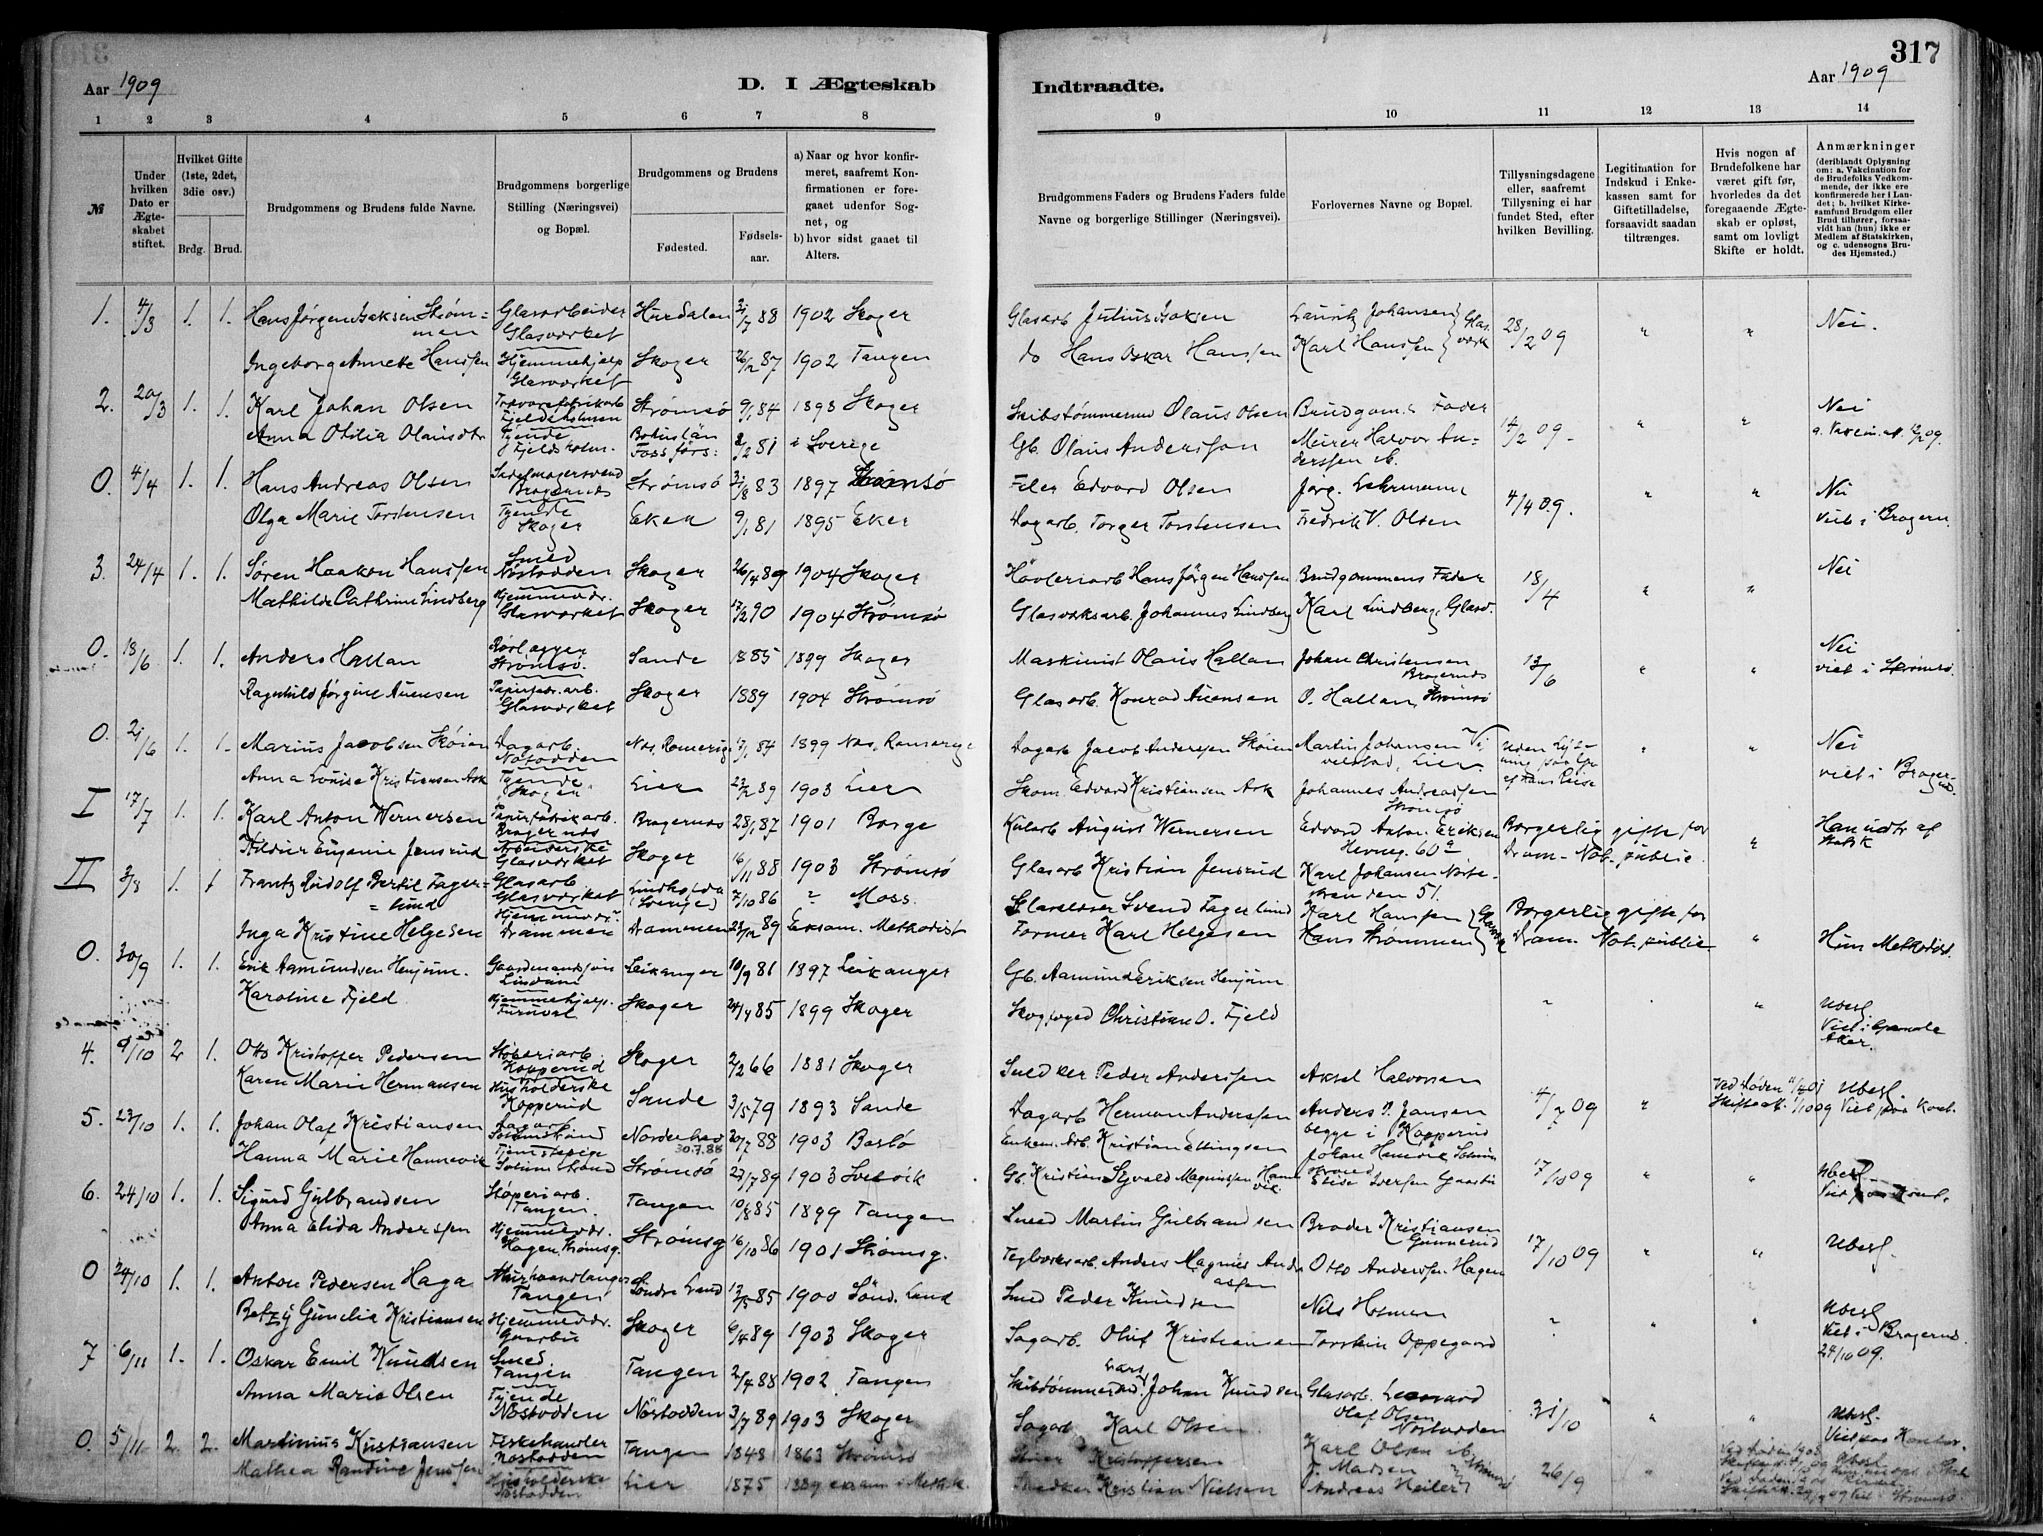 317
Aar 1909
D. I Ægteskab
Indtraadte.
Aar 1909
1 2 3 4 5 6 7 8
9 10 11 12 13 14
№
Under hvilken Dato er Ægteskabet stiftet.
Hvilket Gifte (1ste, 2det, 3die osv.)
Brdg. Brud.
Brudgommens og Brudens fulde Navne.
Brudgommens borgerlige Stilling (Næringsvei) og Bopæl.
Brudgommens og Brudens
Fødested. Fødselsaar.
a) Naar og hvor konfirmeret, saafremt Konfirmationen er foregaaet udenfor Sognet, og
b) hvor sidst gaaet til Alters.
Brudgommens Faders og Brudens Faders fulde Navne og borgerlige Stillinger (Næringsvei).
Forlovernes Navne og Bopæl.
Tillysningsdagene eller, saafremt Tillysning ei har fundet Sted, efter hvilken Bevilling.
Legitimation for Indskud i Enkekassen samt for Giftetilladelse, forsaavidt saadan tiltrænges.
Hvis nogen af Brudefolkene har været gift før, hvorledes da det foregaaende Ægteskab er opløst, samt om lovligt Skifte er holdt.
Anmærkninger (deriblandt Oplysning om: a. Vakcination for de Brudefolks Vedkommende, der ikke ere konfirmerede her i Landet; b. hvilket Kirkesamfund Brudgom eller Brud tilhører, forsaavidt han (hun) ikke er Medlem af Statskirken, og c. udensogns Brudes Hjemsted.)
1. 4/3 1. 1. Hans Jørgen Isaksen Strømmen Glasarbeider Glasværket Hurdalen 21/7 88 1902 Skoger Glasarb Julius Isaksen Lauritz Johansen 28/2 09 " " Nei.
Ingeborg Annette Hanssen Hjemmehjelp Glasværket Skoger 26/12 87 1902 Tangen do Hans Oskar Hanssen Karl Hanssen Glasværk
2. 20/3 1. 1. Karl Johan Olsen Fjeldsholmen Strømsø 9/1 84 1898 Skoger Skibstømmermd Olaus Olsen Brudgom.s Fader 14/2 09 " " Nei
Anna Otilia Olausdtr Tjende Fjeldsholm. Bohuslän Foss fors: 2/2 81 i Sverige Gb. Olaus Anderssen Murer Halvor Anderssen ib. a. Vaccin. att. 12/2 09.
0. 4/4 1. 1. Hans Andreas Olsen Sadelmagersvend Bragernes Strømsø 31/8 83 1897 Strømsø Filer Edvard Olsen Jørg. Lehrmann 4/4 09. " " Nei
Olga Marie Torstensen Tjende Skoger Eker 9/1 81 1895 Eker Dagarb. Torger Torstensen Fredrik V. Olsen Viet i Bragern.
3. 24/4 1. 1. Søren Haakon Hanssen Smed Nøstodden Skoger 26/4 89 1904 Skoger Høvleriarb Hans Jørgen Hanssen Brudgommens Fader 18/4 " " Nei
Mathilde Cathrine Lindberg Hjemmevdr. Glasværket Skoger 17/2 90 1904 Strømsø Glasværksarb. Johannes Lindberg Karl Lindberg, Glasv.
0. 18/6 1. 1. Anders Hallan Rørlægger Strømsø. Sande 1885 1899 Skoger Maskinist Olaus Hallan Johan Christensen Bragernes 13/6 " " Nei
Ragnhild Jørgine Auensen Papirfabr.arb. Glasværket Skoger 1889 1904 Strømsø Glasarb. Konrad Auensen O. Hallan, Strømsø viet i Strømsø.
0. 21/6 1. 1. Marius Jacobsen Skøien Dagarb. Notodden Nes, Romerige 17/1 84 1899 Nes, Romerige Dagarb Jacob Anderssen Skøien Martin Johansen Lier Uden Lysning " " Nei
Anna Lovise Kristiansen Ask Tjende Skoger Lier 1903 Lier Skom. Edvard Kristiansen Ask Johannes Andreassen Strømsø viet i Bragernes.
I 17/7 1. 1. Karl Anton Wernersen Papirfabrikarb. Bragernes Bragernes 28/1 87 1901 Borge Kularb August Wernersen Edvard Anton Eriksen Havneg. 60a Borgerlig gifte for Dram. Not. publie " Han udtr af Statsk
Hildur Eugenie Jensrud Arbeiderske Glasværket Skoger 16/11 88 1903 Strømsø Glasarb Kristian Jensrud Karl Johansen Nøstestranden 51.
II 3/8 1. 1 Frantz Rudolf Bertil Fagerlund Glasarb Glasværket (Sverige) 7/10 86 " Moss. Glasblæser Svend Fagerlund Karl Hanssen Borgerlig gifte for
Inga Kristine Helgesen Drammen Drammen 23/12 89 Exsam. Methodist Former Karl Helgesen Hans Strømmen Glasværk Dram. Not. publie " Hun Methodist.
0. 30/9 1. 1. Erik Aamundsen Henjum. Gaardmandssøn Leikanger 10/9 81 1897 Leikanger Gb. Aamund Eriksen Henjum
Karoline Fjeld Hjemmehjelp. Skoger 24/4 85 1899 Skoger Skogfoged Christian O. Fjeld " " Uberl. Viet i Gamle Aker.
4. 9/10 2 1. Otto Kristoffer Pedersen Støberiarb. Kopperud Skoger 2/2 66 1881 Skoger Snedker Peder Anderssen Aksel Halvorsen
Karen Marie Hermansen Husholderske Kopperud Sande 3/5 79 1893 Sande Dagarb Herman Anderssen Anders P. Jansen begge i Kopperud 09 " Ved Døden Skifteatt. Uberl. Viet paa Kont.
5. 23/10 1. 1. Johan Olaf Kristiansen Norderhov 30.7.88 20/7 88 1903 Kristian Ellingsen Johan Henrik
Hanna Marie Hannevik Tjenestepige Strømsø 23/7 89 1903 Svelvik Gb. Kristian Sigvald Magnussen Hannevik 17/10 09 " " Uberl. Viet paa Kont.
6. 24/10 1. 1. Sigurd Gulbrandsen Støperiarb. Tangen. Tangen 10/8 85 1899 Tangen Smed Martin Gulbrandsen Broder Kristiansen Gunnerud
Anna Elida Anderssen Hjemmevdr. Hagen, Strømsg. Strømsg 16/10 86 1901 Strømsg. Teglværksarb. Anders Magnus Andreassen Otto Anderssen Hagen 17/10 09 " " Uberl.
0 24/10 1. 1. Anton Pedersen Haga Murhaandlanger Tangen Søndre Land 13/5 85 1900 Sønd. Land Smed Peder Knudsen Nils Hosmen
Betzy Gunelia Kristiansen Hjemmevdr. Skoger 6/4 89 1903 Skoger Sagarb. Oluf Kristiansen Torstein Oppegaard " " Uberl Viet i Bragernes 24/10 09.
7 6/11 1. 1. Oskar Emil Knudsen Smed. Tangen Tangen 2/4 88 1902 Tangen Skibstømmermd Lars Johan Knudsen Glasarb. Leonard
Anna Marie Olsen Tjende Nøstodden Nøstodden 3/7 89 1903 Skoger Sagarb Karl Olsen Olaf Olsen Nøstodden 31/10 " " Uberl. Viet paa Kontor.
0. 5/11 2. 2. Martinius Kristiansen Fiskehandler Nøstodden Tangen 1848 1863 Strømsø Kristoffersen Karl Olsen ib
Mathea Randine Jenssen Husholderske Nøstodden Lier 1875 1889 exam i Meth.k. Snedker Kristian Nielsen J. Madsen Andreas Heiler Strømsø 26/9 " Ved Døden Uberl Viet i Strømsø.